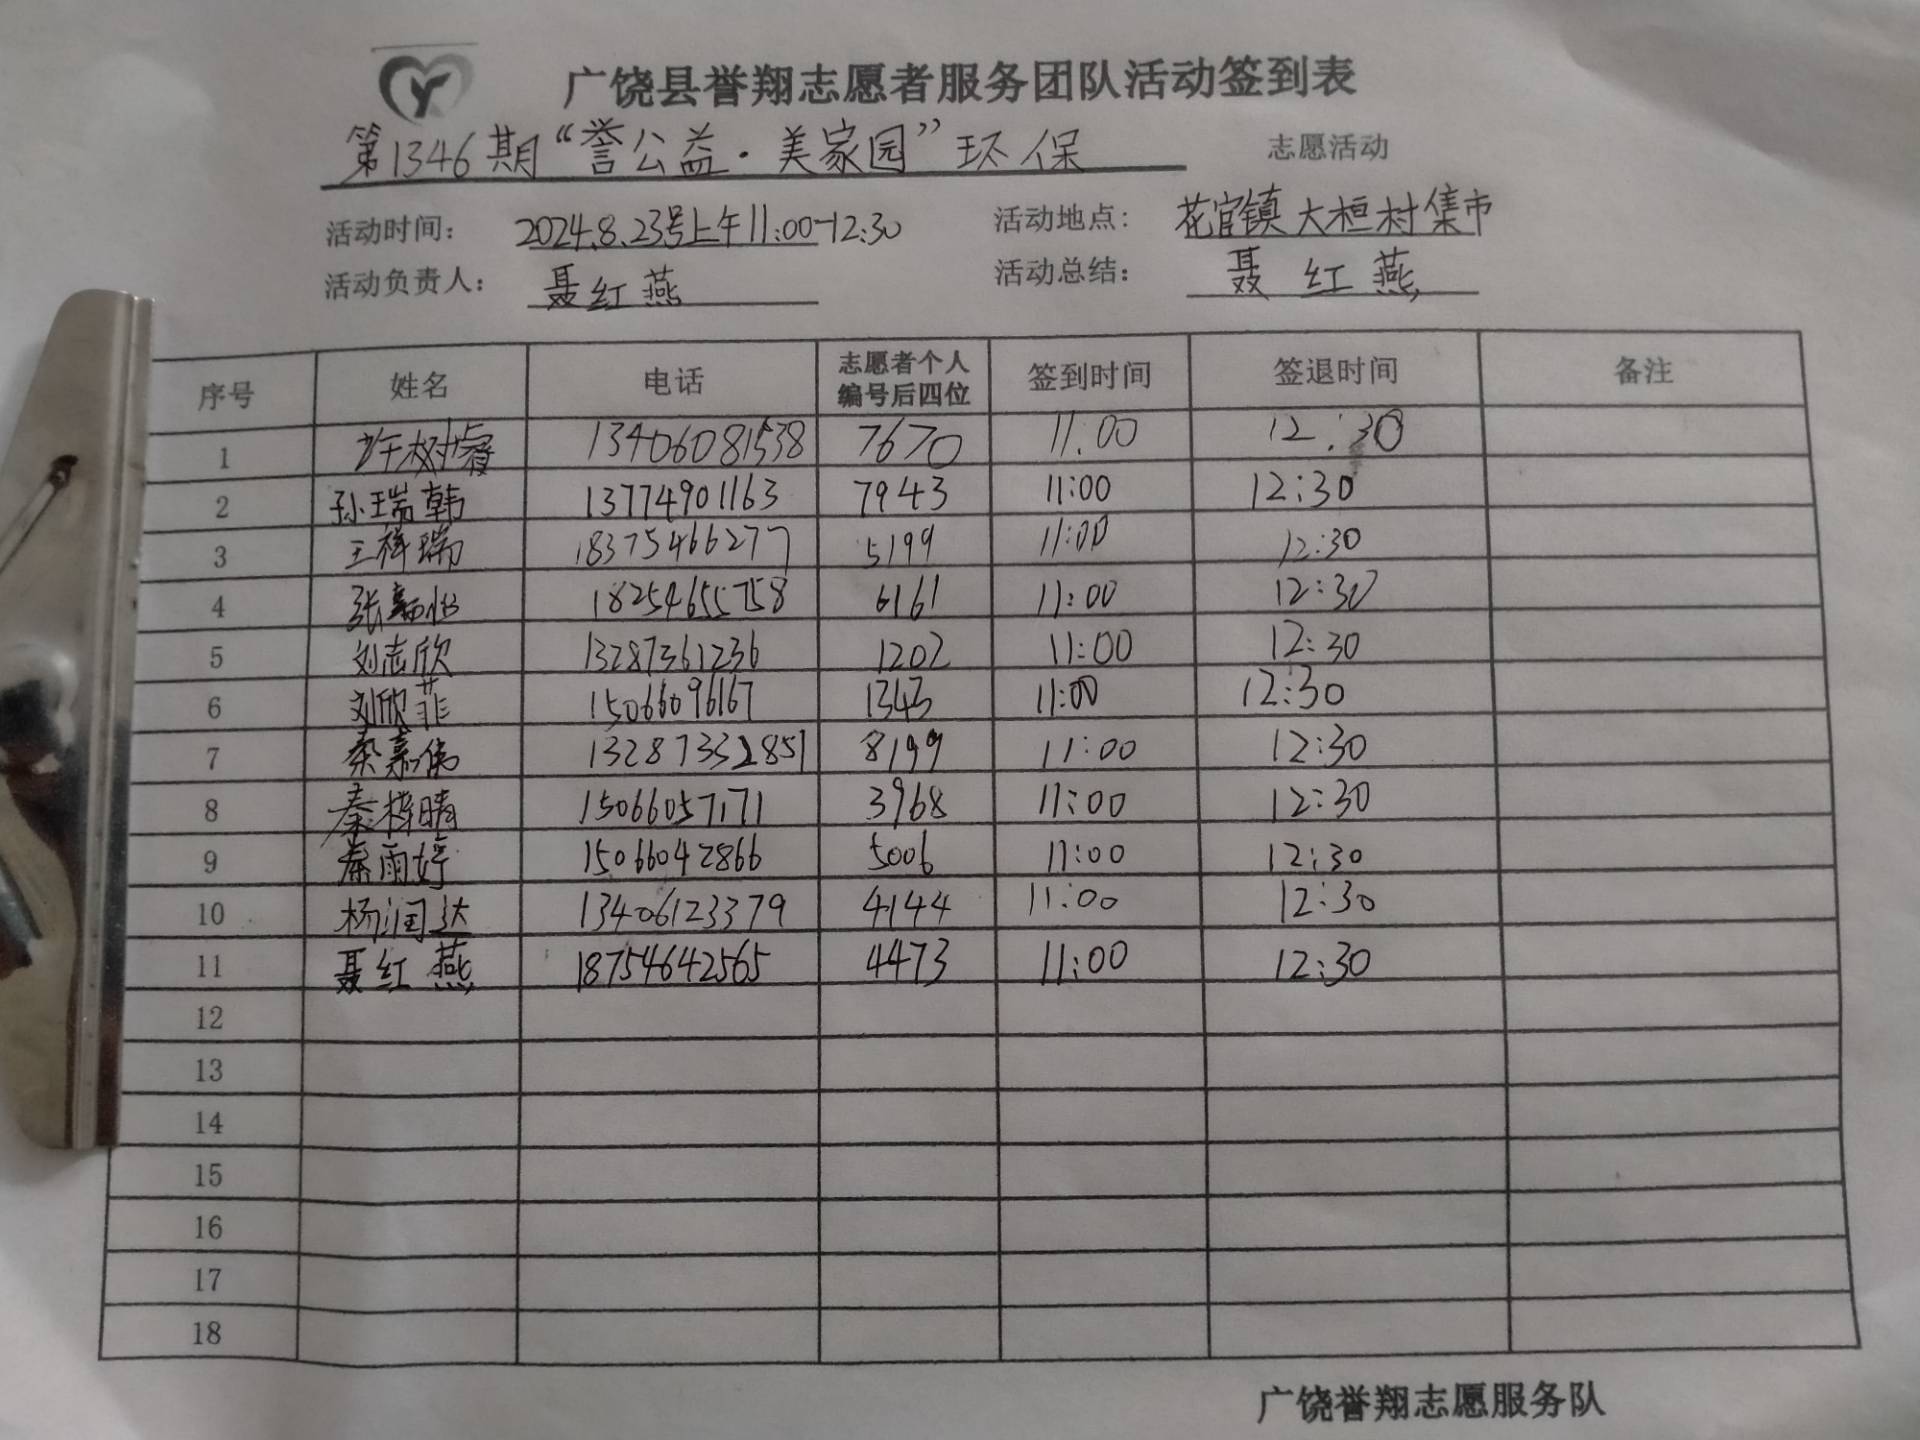 广饶县誉翔志愿者服务团队活动签到表
第1346期“誉公益·美家园”环保 志愿活动
活动时间： 2024.8.23号上午11:00-12:30 活动地点： 花官镇大桓村集市
活动负责人： 聂红燕 活动总结： 聂红燕
序号 姓名 电话 志愿者个人编号后四位 签到时间 签退时间 备注
1 许树睿 13406081538 7670 11:00 12:30
2 孙瑞韩 13774901163 7943 11:00 12:30
3 王梓瑞 18375466277 5199 11:00 12:30
4 张嘉怡 18254655758 6161 11:00 12:30
5 刘志欣 13287361236 1202 11:00 12:30
6 刘欣菲 15066096167 1343 11:00 12:30
7 秦嘉伟 13287332851 8199 11:00 12:30
8 秦梓晴 15066057171 3968 11:00 12:30
9 秦雨婷 15066042866 5006 11:00 12:30
10 杨润达 13406123379 4144 11:00 12:30
11 聂红燕 18754642565 4473 11:00 12:30
12
13
14
15
16
17
18
广饶誉翔志愿服务队